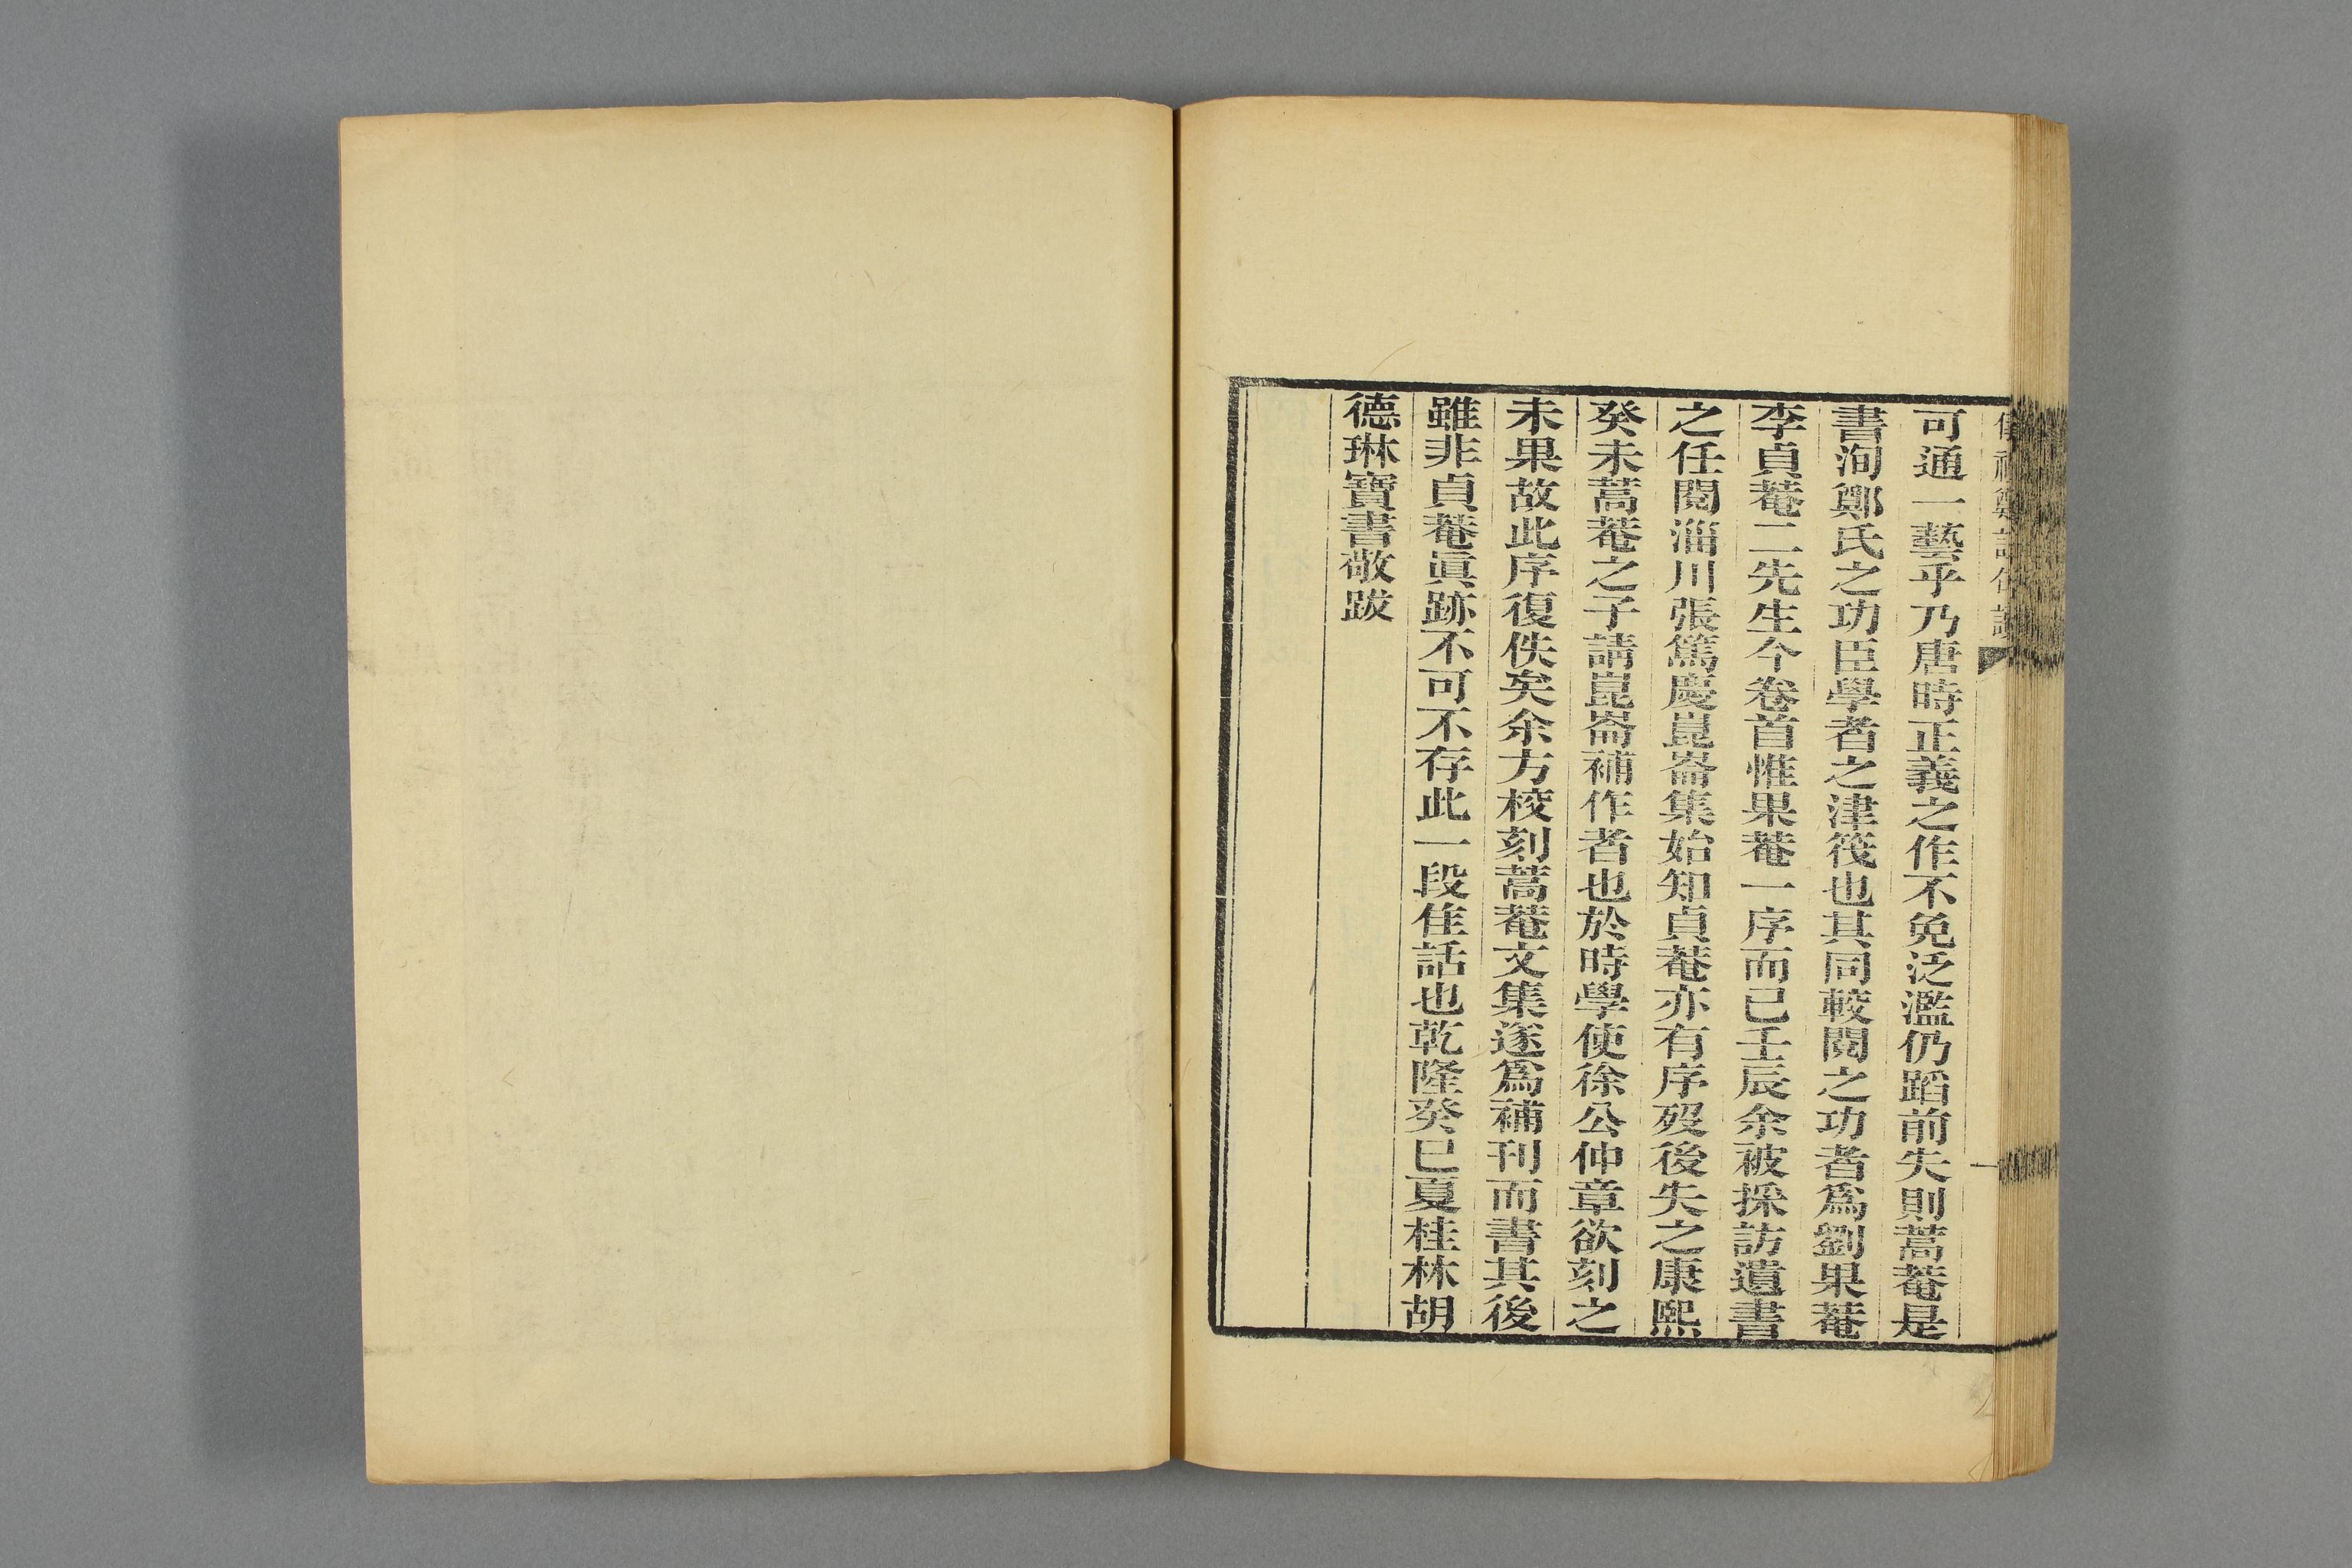 可通一藝乎乃唐時正義之作不免泛濫仍蹈前失則蒿菴是
書洵鄭氏之功臣學者之津筏也其同較閱之功者爲劉果菴
李貞菴二先生今卷首惟果菴一序而已壬辰余被採訪遺書
之任閱淄川張篤慶崑崙集始知貞菴亦有序歿後失之康熙
癸未蒿菴之子請崑崙補作者也於時學使徐公仲章欲刻之
未果故此序復佚矣余方校刻蒿菴文集遂爲補刊而書其後
雖非貞菴眞跡不可不存此一段佳話也乾隆癸巳夏桂林胡
德琳寶書敬跋